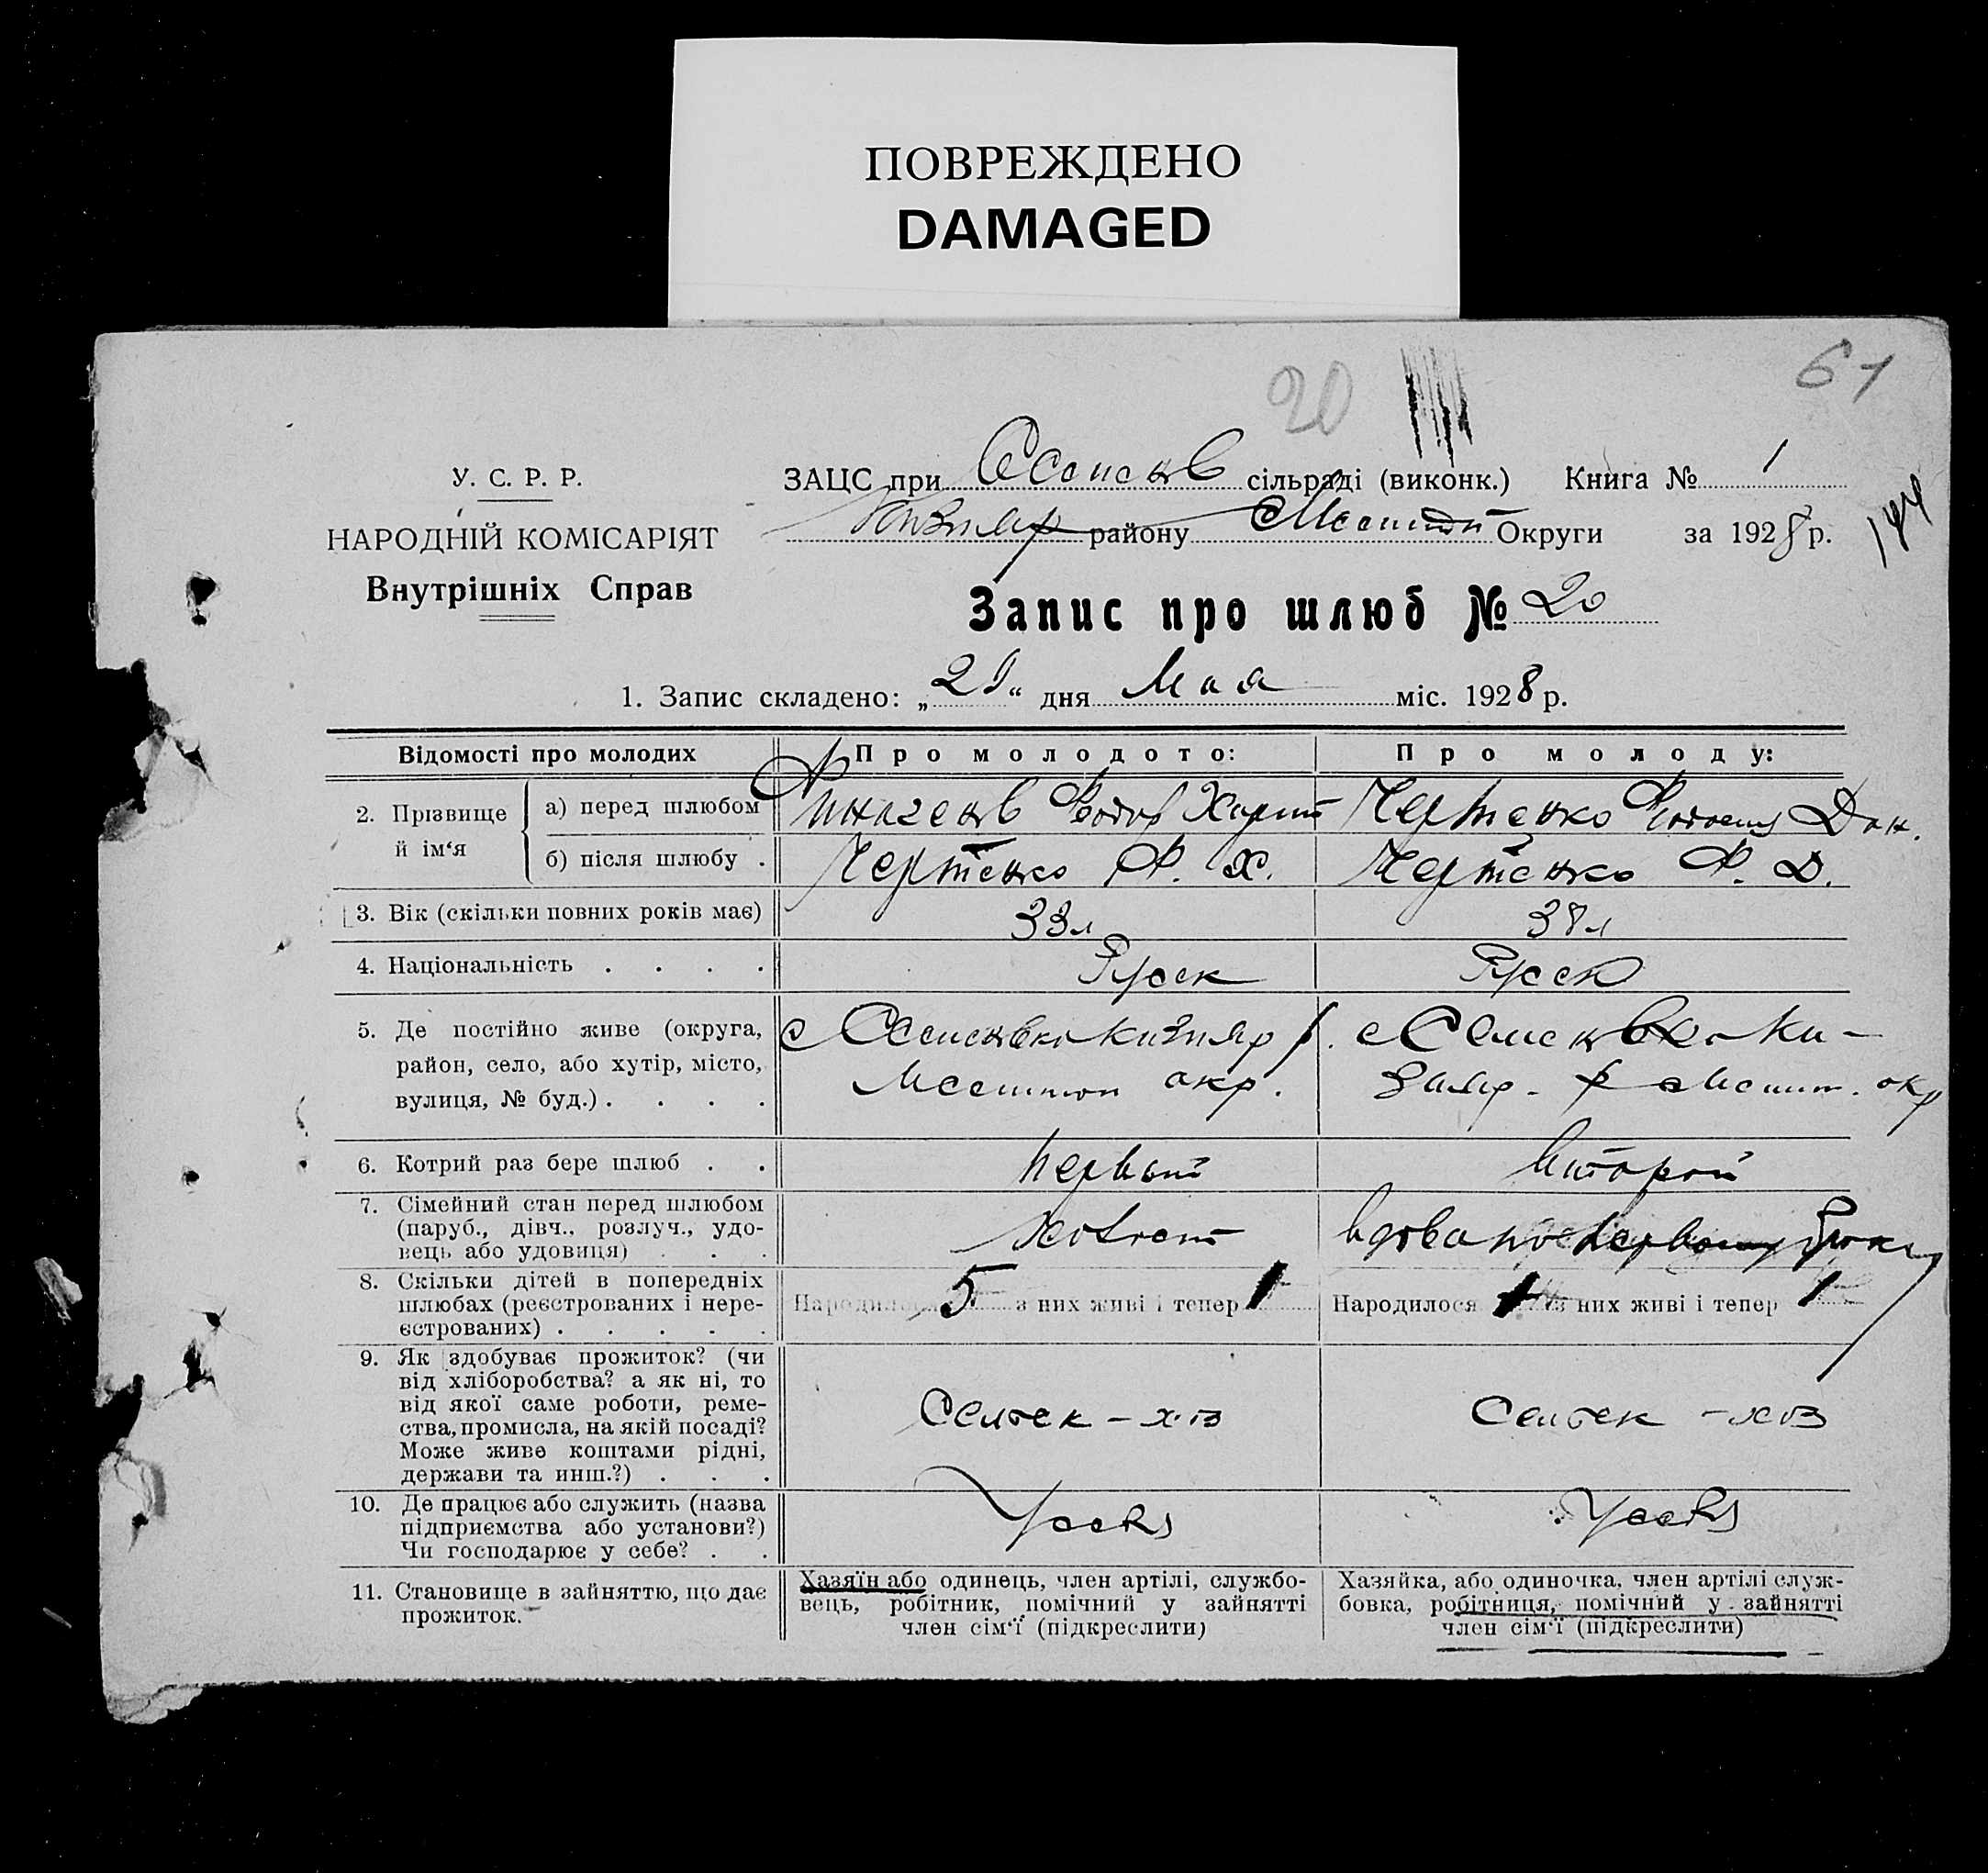 ПОВРЕЖДЕНО
DAMAGED
20
61
У. С. Р. Р.
НАРОДНІЙ КОМІСАРІЯТ
Внутрішніх Справ
ЗАЦС при сільраді (виконк.) Книга № 1
району Округи за 1928 р.
144
Запис про шлюб № 20
1. Запис складено: „ “ дня Мая міс. 1928 р.
Відомості про молодих
Про молодого:
Про молоду:
2. Прізвище й ім‘я
а) перед шлюбом
Федор Харит
Чертенко Дан.
б) після шлюбу .
Чертенко Ф. Х.
Чертенко Ф. Д.
3. Вік (скільки повних років має)
33 л
38 л
4. Національність . . . .
Русск
Русск
5. Де постійно живе (округа,
район, село, або хутір, місто,
вулиця, № буд.) . . . .
с Кизияр р.
окр.
с Ки-
зияр. р окр
6. Котрий раз бере шлюб . .
Первый
Второй
7. Сімейний стан перед шлюбом
(паруб., дівч., розлуч., удо-
вець або удовиця) . . .
Холост
Вдова после первому браку
8. Скільки дітей в попередніх
шлюбах (реєстрованих і нере-
єстрованих) . . . . .
Народилося 5 з них живі і тепер 1
Народилося з них живі і тепер 1
9. Як здобуває прожиток? (чи
від хліборобства? а як ні, то
від якої саме роботи, реме-
ства, промисла, на якій посаді?
Може живе коштами рідні,
держави та инш.?) . . .
Сельск - хоз
Сельск - хоз
10. Де працює або служить (назва
підприємства або установи?)
Чи господарює у себе? . .
У себя
У себя
11. Становище в зайняттю, що дає
прожиток.
Хазяїн або одинець, член артілі, службо-
вець, робітник, помічний у зайнятті
член сім‘ї (підкреслити)
Хазяйка, або одиночка, член артілі служ-
бовка, робітниця, помічний у зайнятті
член сім‘ї (підкреслити)